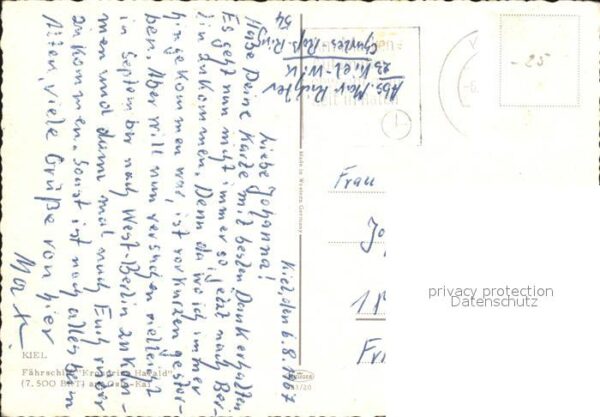 Kiel, den 6.8.1967
Liebe Johanna!
Habe Deine Karte mit besten Dank erhalten.
Es geht nun nicht immer so jetzt nach Ber-
lin zu kommen. Denn da wo ich immer
hingekommen war, ist vor kurzen gestor-
ben. Aber will nun versuchen vielleicht
im September nach West-Berlin zu kom-
men und dann mal nach Euch rüber
zu kommen. Sonst ist noch alles beim
Alten, viele Grüße von hier
Abs. Max Richter
23 Kiel-Wik
Charles-Roß-Ring
54
-25-
Frau
Jo
1
Fr
privacy protection
Datenschutz
Made in Western Germany
KIEL
Fährschiff "Kronprins Harald"
(7.500 BRT) am Oslo-Kai